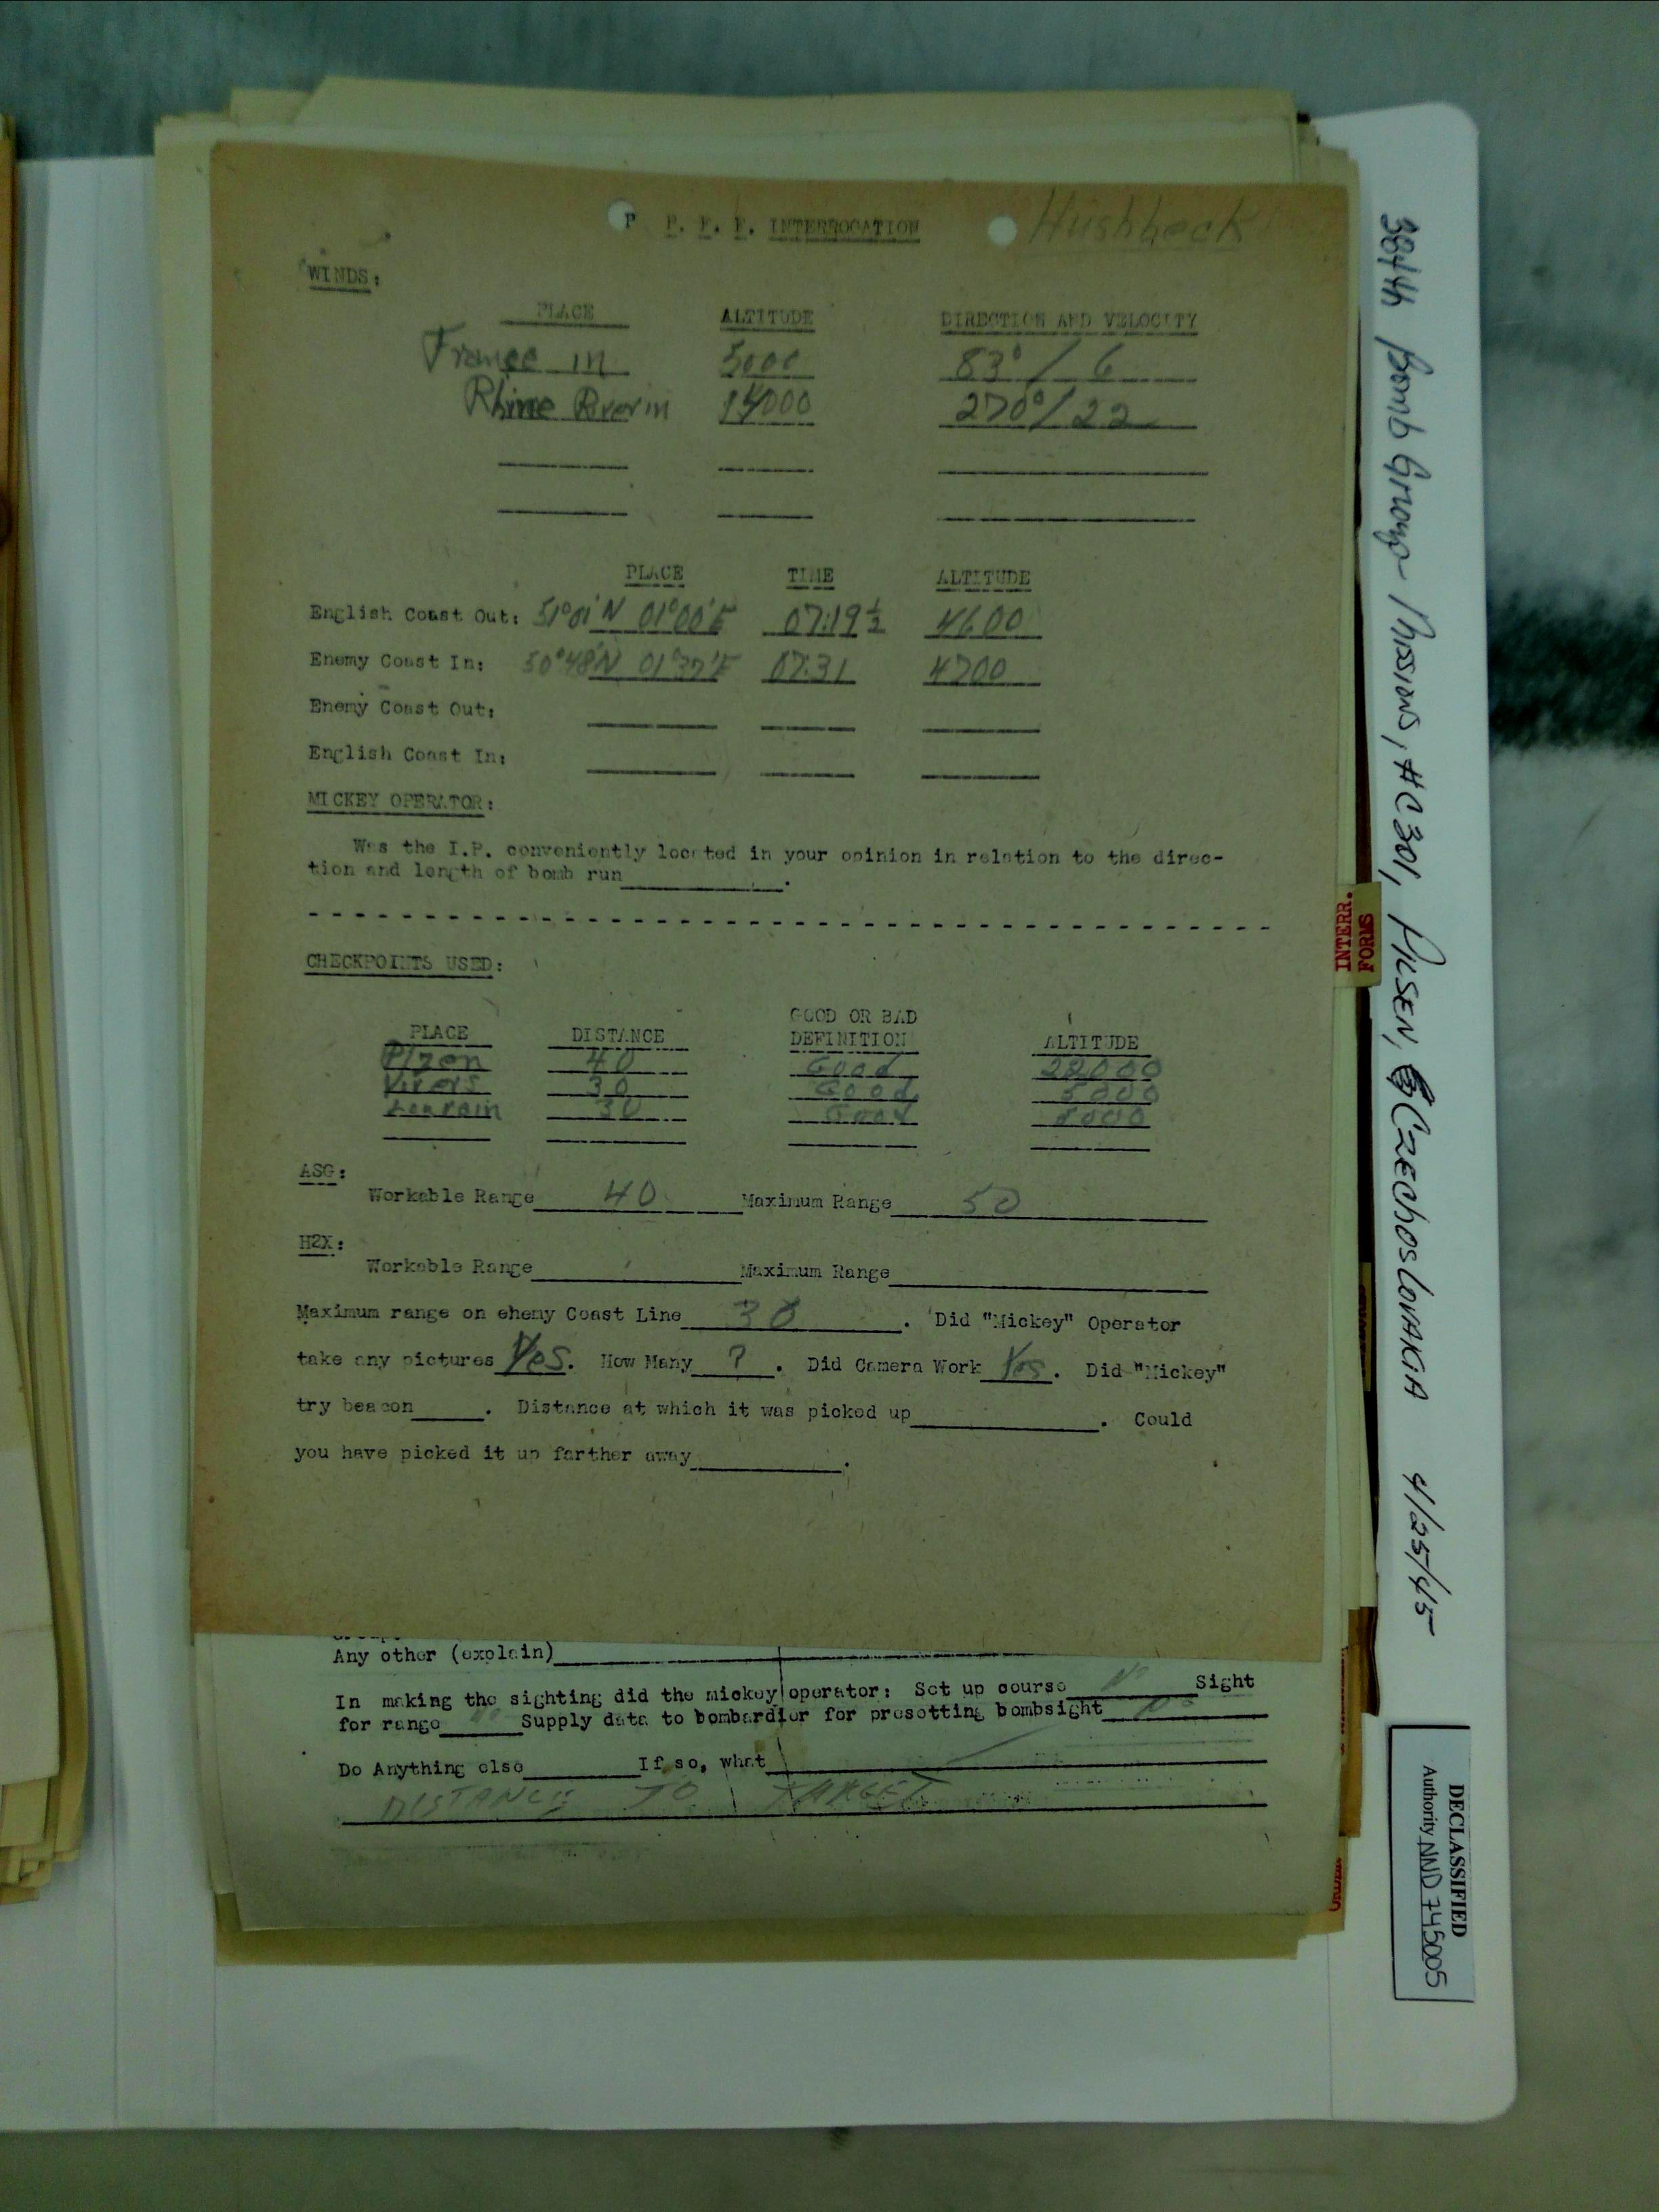 P P. F. F. INTERROGATION Hushbeck
WINDS:
PLACE ALTITUDE DIRECTION AND VELOCITY
France in 5000 83° / 6
Rhine River in 14000 270° / 22
PLACE TIME ALTITUDE
English Coast Out: 51°01'N 01°00'E 07:19½ 4600
Enemy Coast In: 50°48'N 01°37'E 07:31 4700
Enemy Coast Out:
English Coast In:
MICKEY OPERATOR:
Was the I.P. conveniently located in your opinion in relation to the direc-
tion and length of bomb run .
CHECKPOINTS USED:
GOOD OR BAD
PLACE DISTANCE DEFINITION ALTITUDE
Plzen 40 Good 22000
30 Good 5000
30 Good 5000
ASG:
Workable Range 40 Maximum Range 50
H2X:
Workable Range Maximum Range
Maximum range on ehemy Coast Line 30 . Did "Mickey" Operator
take any pictures Yes. How Many ? . Did Camera Work Yes. Did "Mickey"
try beacon . Distance at which it was picked up . Could
you have picked it up farther away .
Any other (explain)
In making the sighting did the mickey operator: Set up course No Sight
for range No Supply data to bombardier for presetting bombsight No
Do Anything else If so, what
DISTANCE TO TARGET
384th Bomb Group Missions, #C301, PILSEN, CZECHOSLOVAKIA 4/25/45
INTERR.
FORMS
DECLASSIFIED
Authority NND 745005